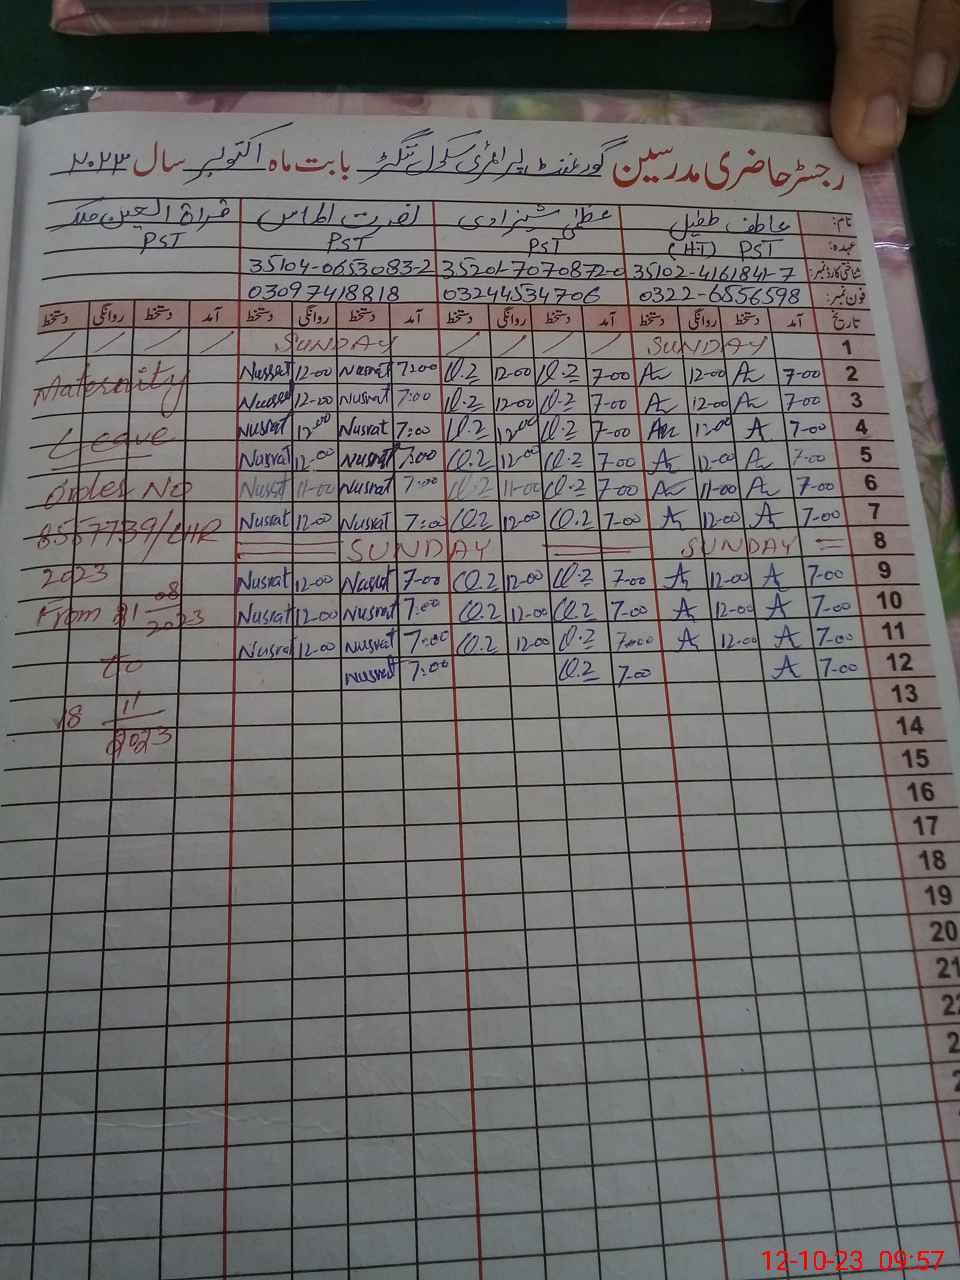 رجسٹر حاضری مدرسین گورنمنٹ پرائمری سکول بابت ماہ اکتوبر سال ۲۰۲۳
نام: عاطف طفیل عظمیٰ شہزادی نصرت الماس قراۃ العین ملک
عہدہ: PST (HT) PST PST PST
شناختی کارڈ نمبر: 35102-4161841-7 35201-7070872-0 35104-0653083-2
فون نمبر: 0322-6556598 03244534706 03097418818
تاریخ آمد دستخط روانگی دستخط آمد دستخط روانگی دستخط آمد دستخط روانگی دستخط آمد دستخط روانگی دستخط
SUNDAY SUNDAY 1
Maternity Nusrat 12-00 Nusrat 7:00 12-00 7-00 12-00 7-00 2
Nusrat 12-00 Nusrat 7:00 12-00 7-00 12-00 7-00 3
Leave Nusrat 12:00 Nusrat 7:00 12:00 7-00 12-00 A 7-00 4
Nusrat 12-00 Nusrat 7:00 12-00 7-00 12-00 7-00 5
Order No Nusrat 11-00 Nusrat 7:00 11-00 7-00 11-00 7-00 6
8557739/LHR Nusrat 12-00 Nusrat 7:00 12-00 7-00 12-00 7-00 7
SUNDAY SUNDAY 8
2023 Nusrat 12-00 Nusrat 7-00 12-00 7-00 12-00 A 7-00 9
From 21 08 2023 Nusrat 12-00 Nusrat 7:00 12-00 7-00 A 12-00 A 7-00 10
Nusrat 12-00 Nusrat 7:00 12-00 7:00 A 12-00 A 7-00 11
to Nusrat 7:00 7-00 A 7-00 12
13
18 11 2023 14
15
16
17
18
19
20
21
12-10-23 09:57